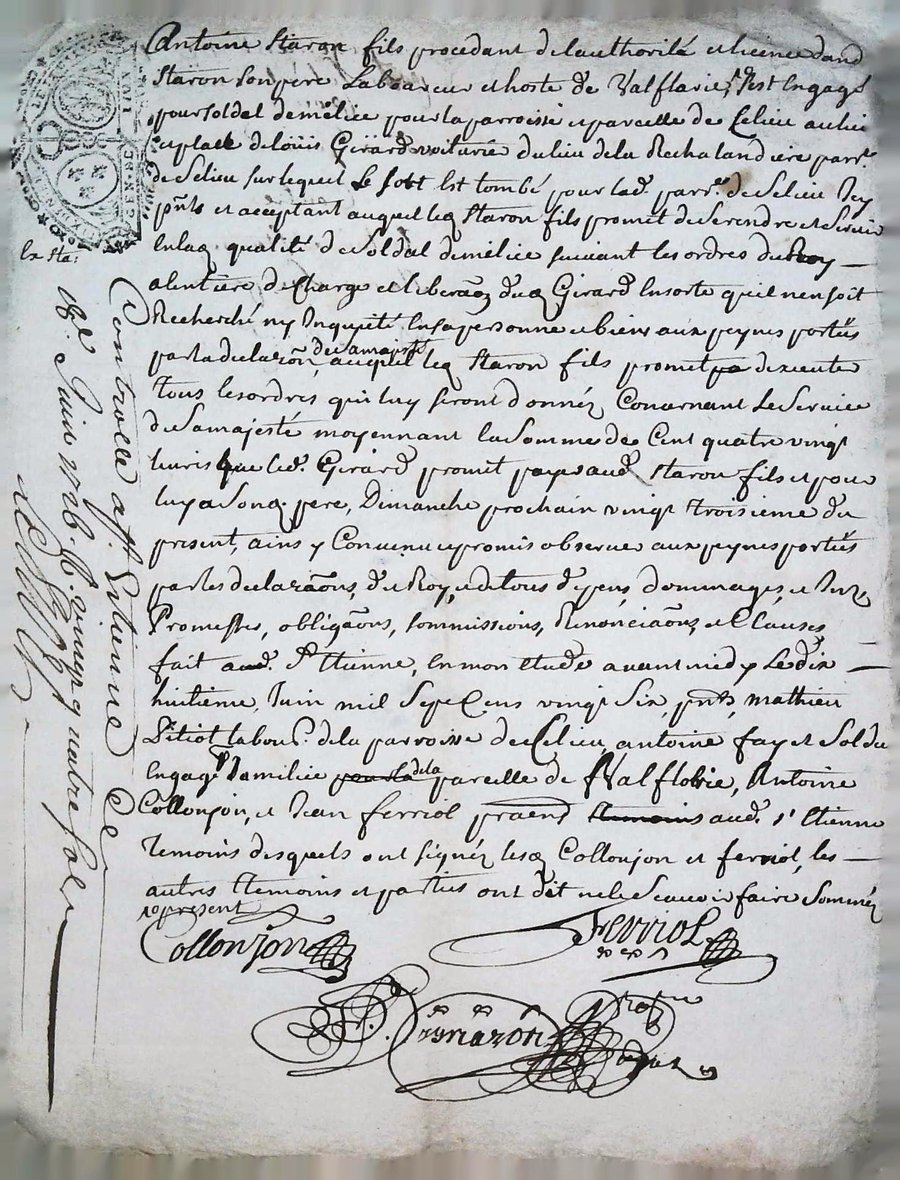 Antoine Staron fils procedant de lauthorité et licence dand
Staron son pere Laboureur et hoste de Valflorie, sest Engagé
pour soldat de mélice pour la parroisse et parcelle de Celieu au lieu
et place de Loüis Girard voiturié du lieu de la Rechalandiere parr.
de Selieu sur lequel Le sort Est tombé pour lad. parr. de Selieu Icy
pnts et acceptant auquel leq Staron fils promet de se rendre et servir
En laq qualité de Soldat de mélice suivant les ordres du Roy
alentiere de Charge et liberaõn duq Girard En sorte quil nen soit
Recherché ny Inquieté En sa personne et biens aux peynes portéés
par la declaraõn de sa majesté, auquel leq Staron fils promet pa dexecuter
tous les ordres qui luy seront donnéz Concernant Le Service
de Sa majesté moyennant la Somme de Cent quatre vingt
livres que led. Girard promet payer aud. Staron fils et pour
luy a Sonq pere, Dimanche prochain vingt troisieme du
present, ains y Convenu et promis observer aux peynes portéés
par les declaraõns, du Roy, et de tous depens dommages, et Intz
Promesses, obligaõns, soumissions, Renonciaõns, et Clauses
fait aud. St Etienne, En mon etude avant midy Le dix
huitieme Juin mil Sept Cens vingt Six, pnts, mathieu
Pitiot labour. de la parroisse de Celieu, antoine fay et Soldat
Engagé de milice pour la de la parcelle de Valflorie, Antoine
Collonjon, et Jean ferriol praens temoins aud. St Etienne
Temoins desquels ont signéz lesq Collonjon et ferriol, les
autres temoins et parties ont dit ne le Scavoir faire Sommés
represent
Collonjon
Ferriol
Ex Sta:
Controllé a St Etienne Le
18e. Juin 1726. R. vingt quatre sols